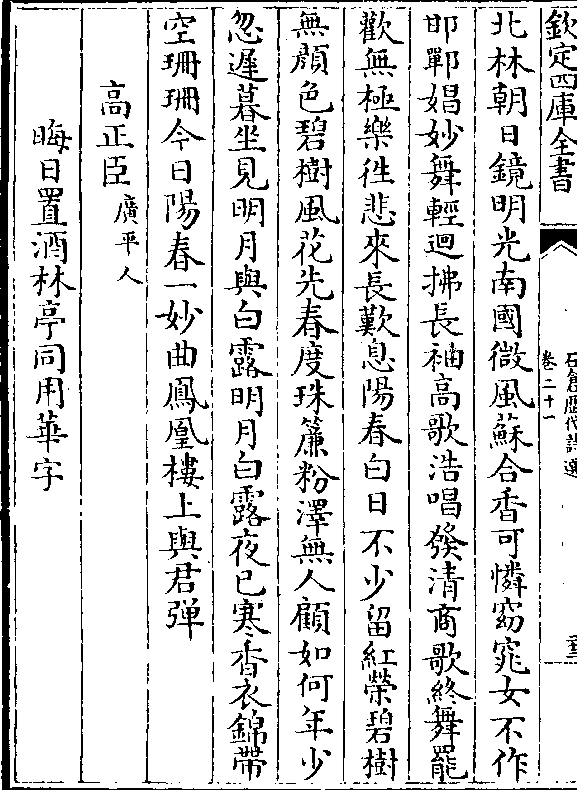 欽定四庫全書
石倉歷代詩選
卷二十一
北林朝日鏡明光南國微風蘇合香可憐窈窕女不作
邯鄲娼妙舞輕迴拂長袖高歌浩唱發清商歌終舞罷
歡無極樂徃悲來長歎息陽春白日不少留紅榮碧樹
無顔色碧樹風花先春度珠簾粉澤無人顧如何年少
忽遲暮坐見明月與白露明月白露夜已寒香衣錦帶
空珊珊今日陽春一妙曲鳳凰樓上與君彈
高正臣廣平人
晦日置酒林亭同用華字